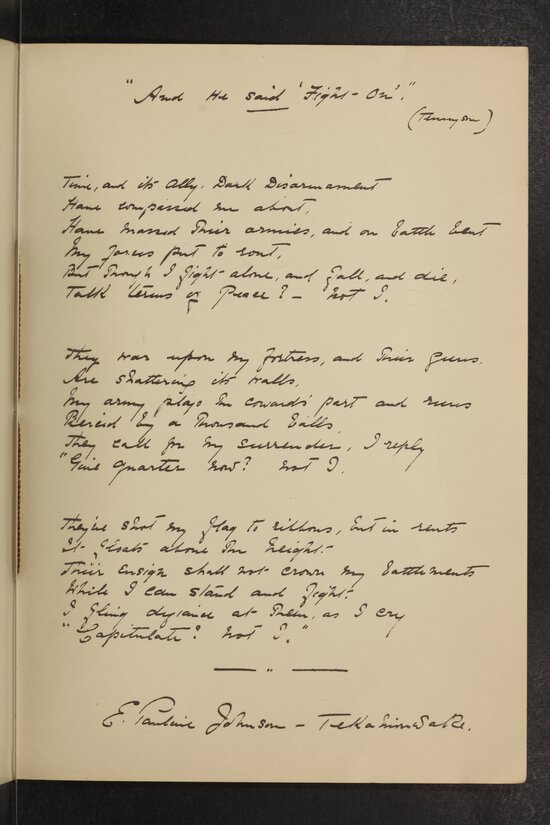 "And He said 'Fight-On'."
(Tennyson)
Time, and its ally. Dark Disarmament
Have compassed me about,
Have massed their armies, and on battle bent
My forces put to rout,
But though I fight alone, and fall, and die,
Talk terms of Peace? – Not I.
They war upon my fortress, and their guns.
Are shattering its walls,
My army plays the cowards' part and runs
Pierced by a thousand balls,
They call for my surrender, I reply
"Give quarter now? Not I.
They've shot my flag to ribbons, but in rents
It floats above the height-
Their ensign shall not crown my battlements
While I can stand and fight-
I fling defiance at them, as I cry
"Capitulate? Not I."
E. Pauline Johnson – Tekahionwake.